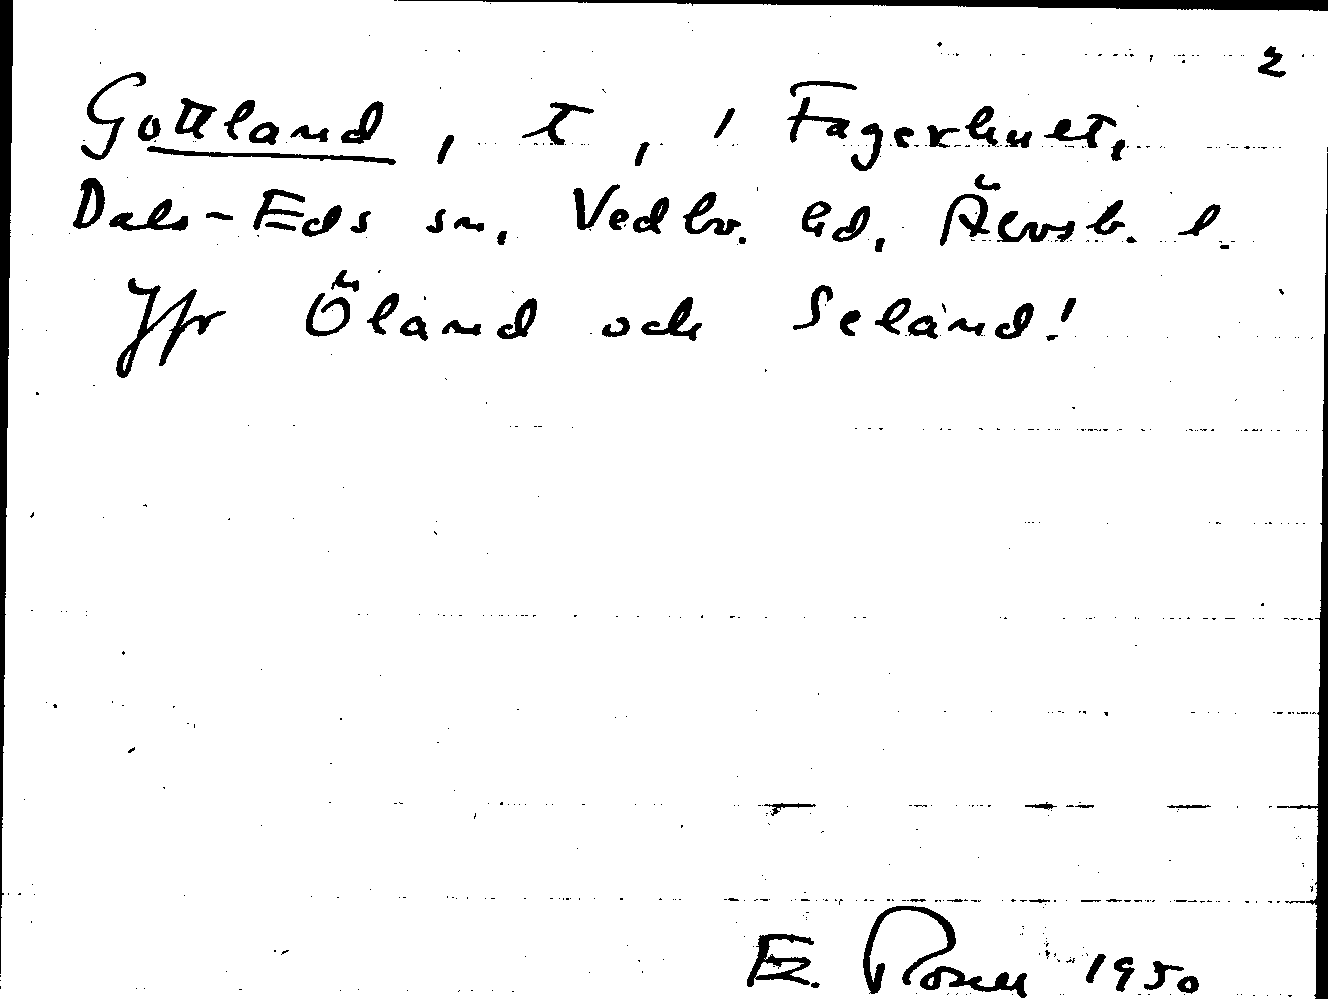 2
Gottland, t, 1 Fagerhult,
Dals-Eds sn, Vedbo. hd, Älvsb. l.
Jfr Öland och Seland!
E. Rosell 1950